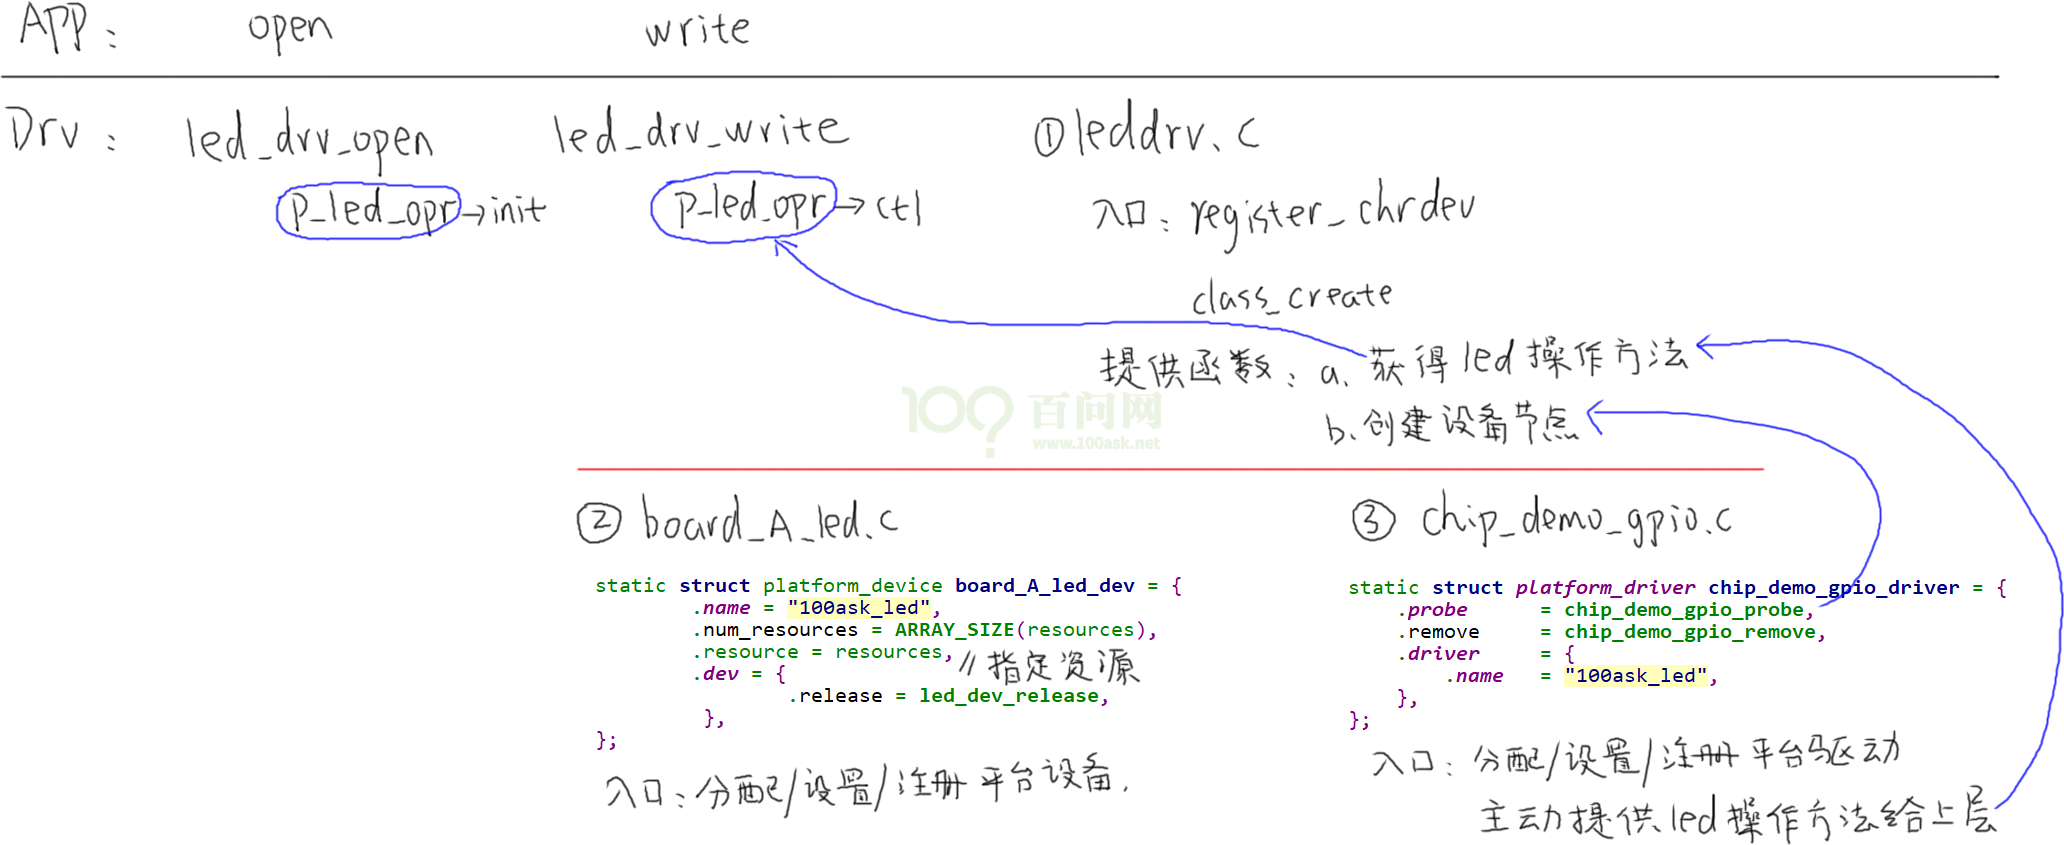 APP: open write
Drv: led_drv_open led_drv_write ①leddrv.c
p_led_opr→init p_led_opr→ctl 入口: register_chrdev
class_create
提供函数: a. 获得led操作方法
b.创建设备节点
100 百问网
www.100ask.net
② board_A_led.c
static struct platform_device board_A_led_dev = {
.name = "100ask_led",
.num_resources = ARRAY_SIZE(resources),
.resource = resources, //指定资源
.dev = {
.release = led_dev_release,
},
};
入口: 分配/设置/注册 平台设备.
③ chip_demo_gpio.c
static struct platform_driver chip_demo_gpio_driver = {
.probe = chip_demo_gpio_probe,
.remove = chip_demo_gpio_remove,
.driver = {
.name = "100ask_led",
},
};
入口: 分配/设置/注册平台驱动
主动提供led操作方法给上层